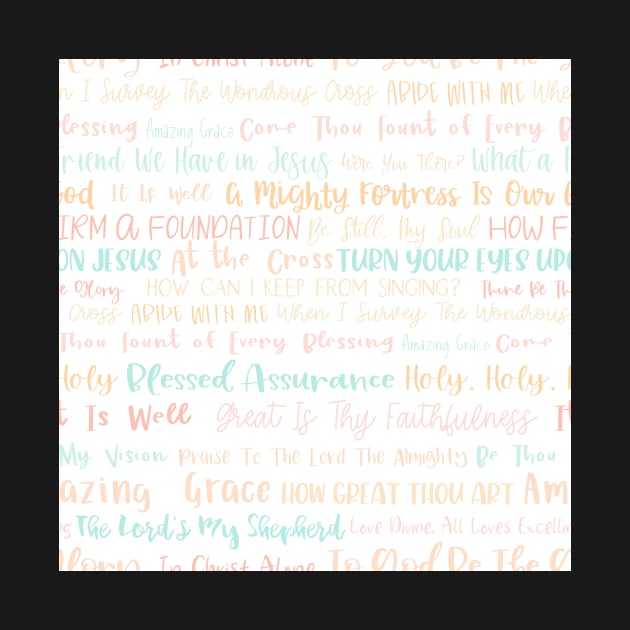 Glory In Christ Alone To God Be The G
n I Survey The Wondrous Cross ABIDE WITH ME Whe
Blessing Amazing Grace Come Thou Fount of Every B
Friend We Have in Jesus Were You There? What a F
God It Is Well A Mighty Fortress Is Our G
IRM A FOUNDATION Be Still, My Soul HOW F
ON JESUS At the Cross TURN YOUR EYES UPO
e Glory HOW CAN I KEEP FROM SINGING? Thine Be Th
Cross ABIDE WITH ME When I Survey The Wondrous
Thou Fount of Every Blessing Amazing Grace Come
Holy Blessed Assurance Holy, Holy, H
t Is Well Great Is Thy Faithfulness It
My Vision Praise To The Lord The Almighty Be Thou
azing Grace HOW GREAT THOU ART Am
ng The Lord's My Shepherd Love Divine, All Loves Excellin
Glory In Christ Alone To God Be The G